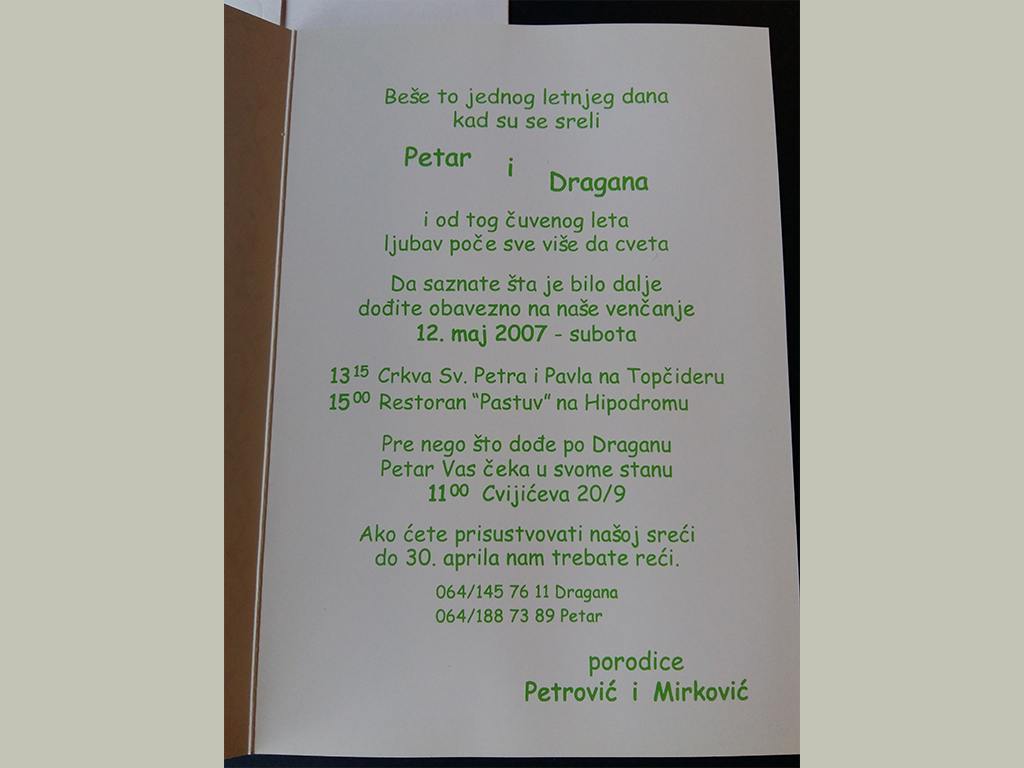 Beše to jednog letnjeg dana
kad su se sreli
Petar i Dragana
i od tog čuvenog leta
ljubav poče sve više da cveta
Da saznate šta je bilo dalje
dođite obavezno na naše venčanje
12. maj 2007 - subota
13 15 Crkva Sv. Petra i Pavla na Topčideru
15 00 Restoran “Pastuv” na Hipodromu
Pre nego što dođe po Draganu
Petar Vas čeka u svome stanu
11 00 Cvijićeva 20/9
Ako ćete prisustvovati našoj sreći
do 30. aprila nam trebate reći.
064/145 76 11 Dragana
064/188 73 89 Petar
porodice
Petrović i Mirković